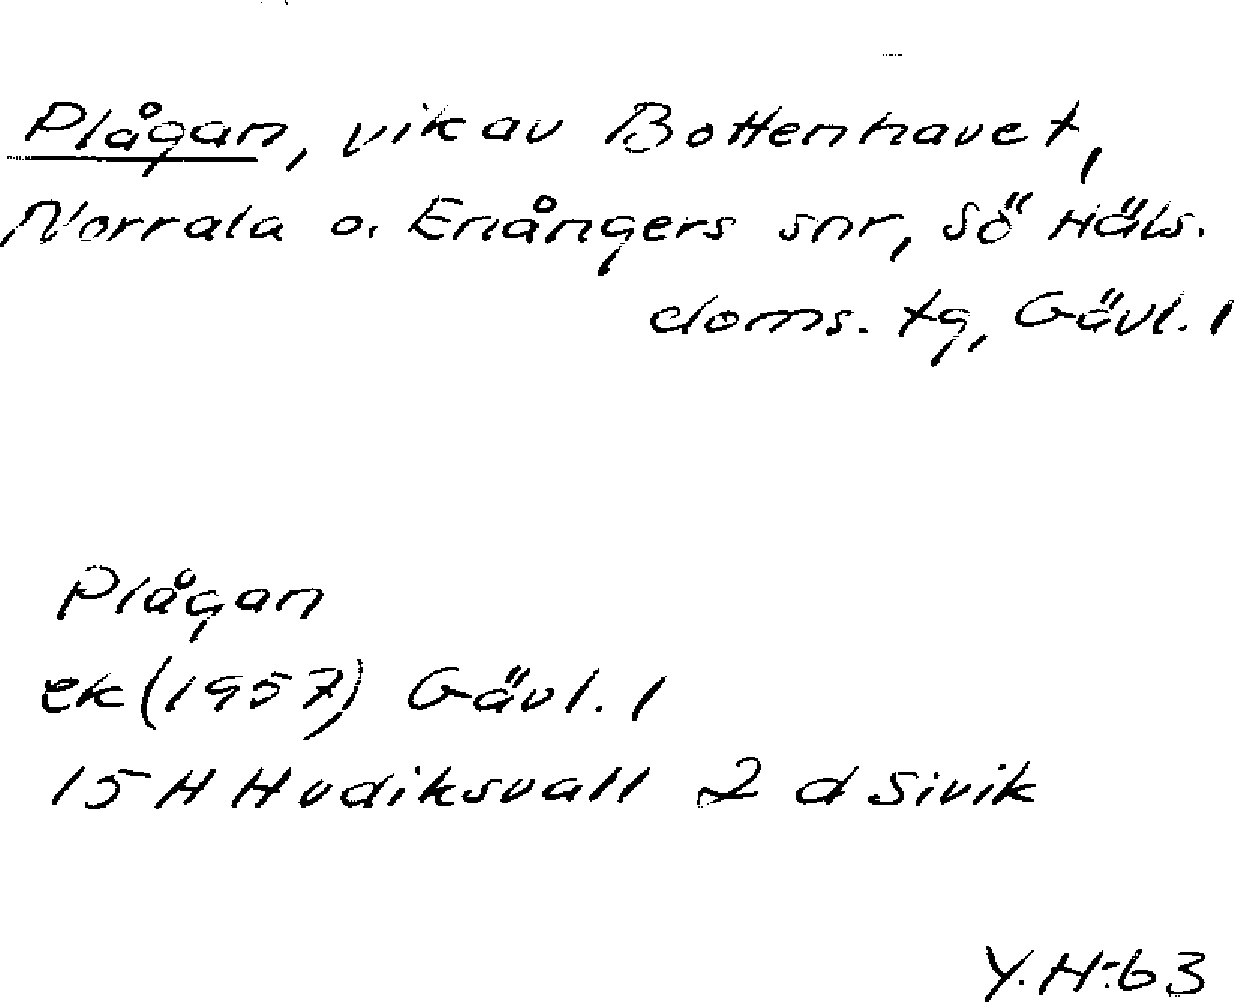 Plågan, vik av Bottenhavet,
Norrala o. Enångers snr, Sö Häls.
doms. tg, Gävl. l
Plågan
ek (1957) Gävl. l
15 H Hudiksvall 2 d Sivik
Y.H:63